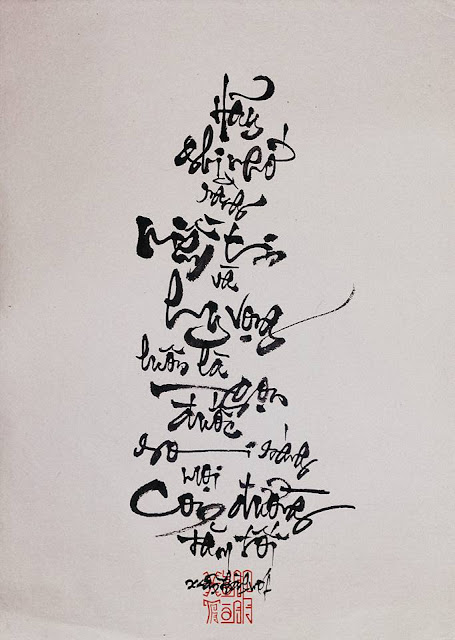 Hãy
ghi nhớ
rằng
niềm tin
và
hy vọng
luôn là
ngọn
đuốc
soi sáng
mọi
con đường
tăm tối